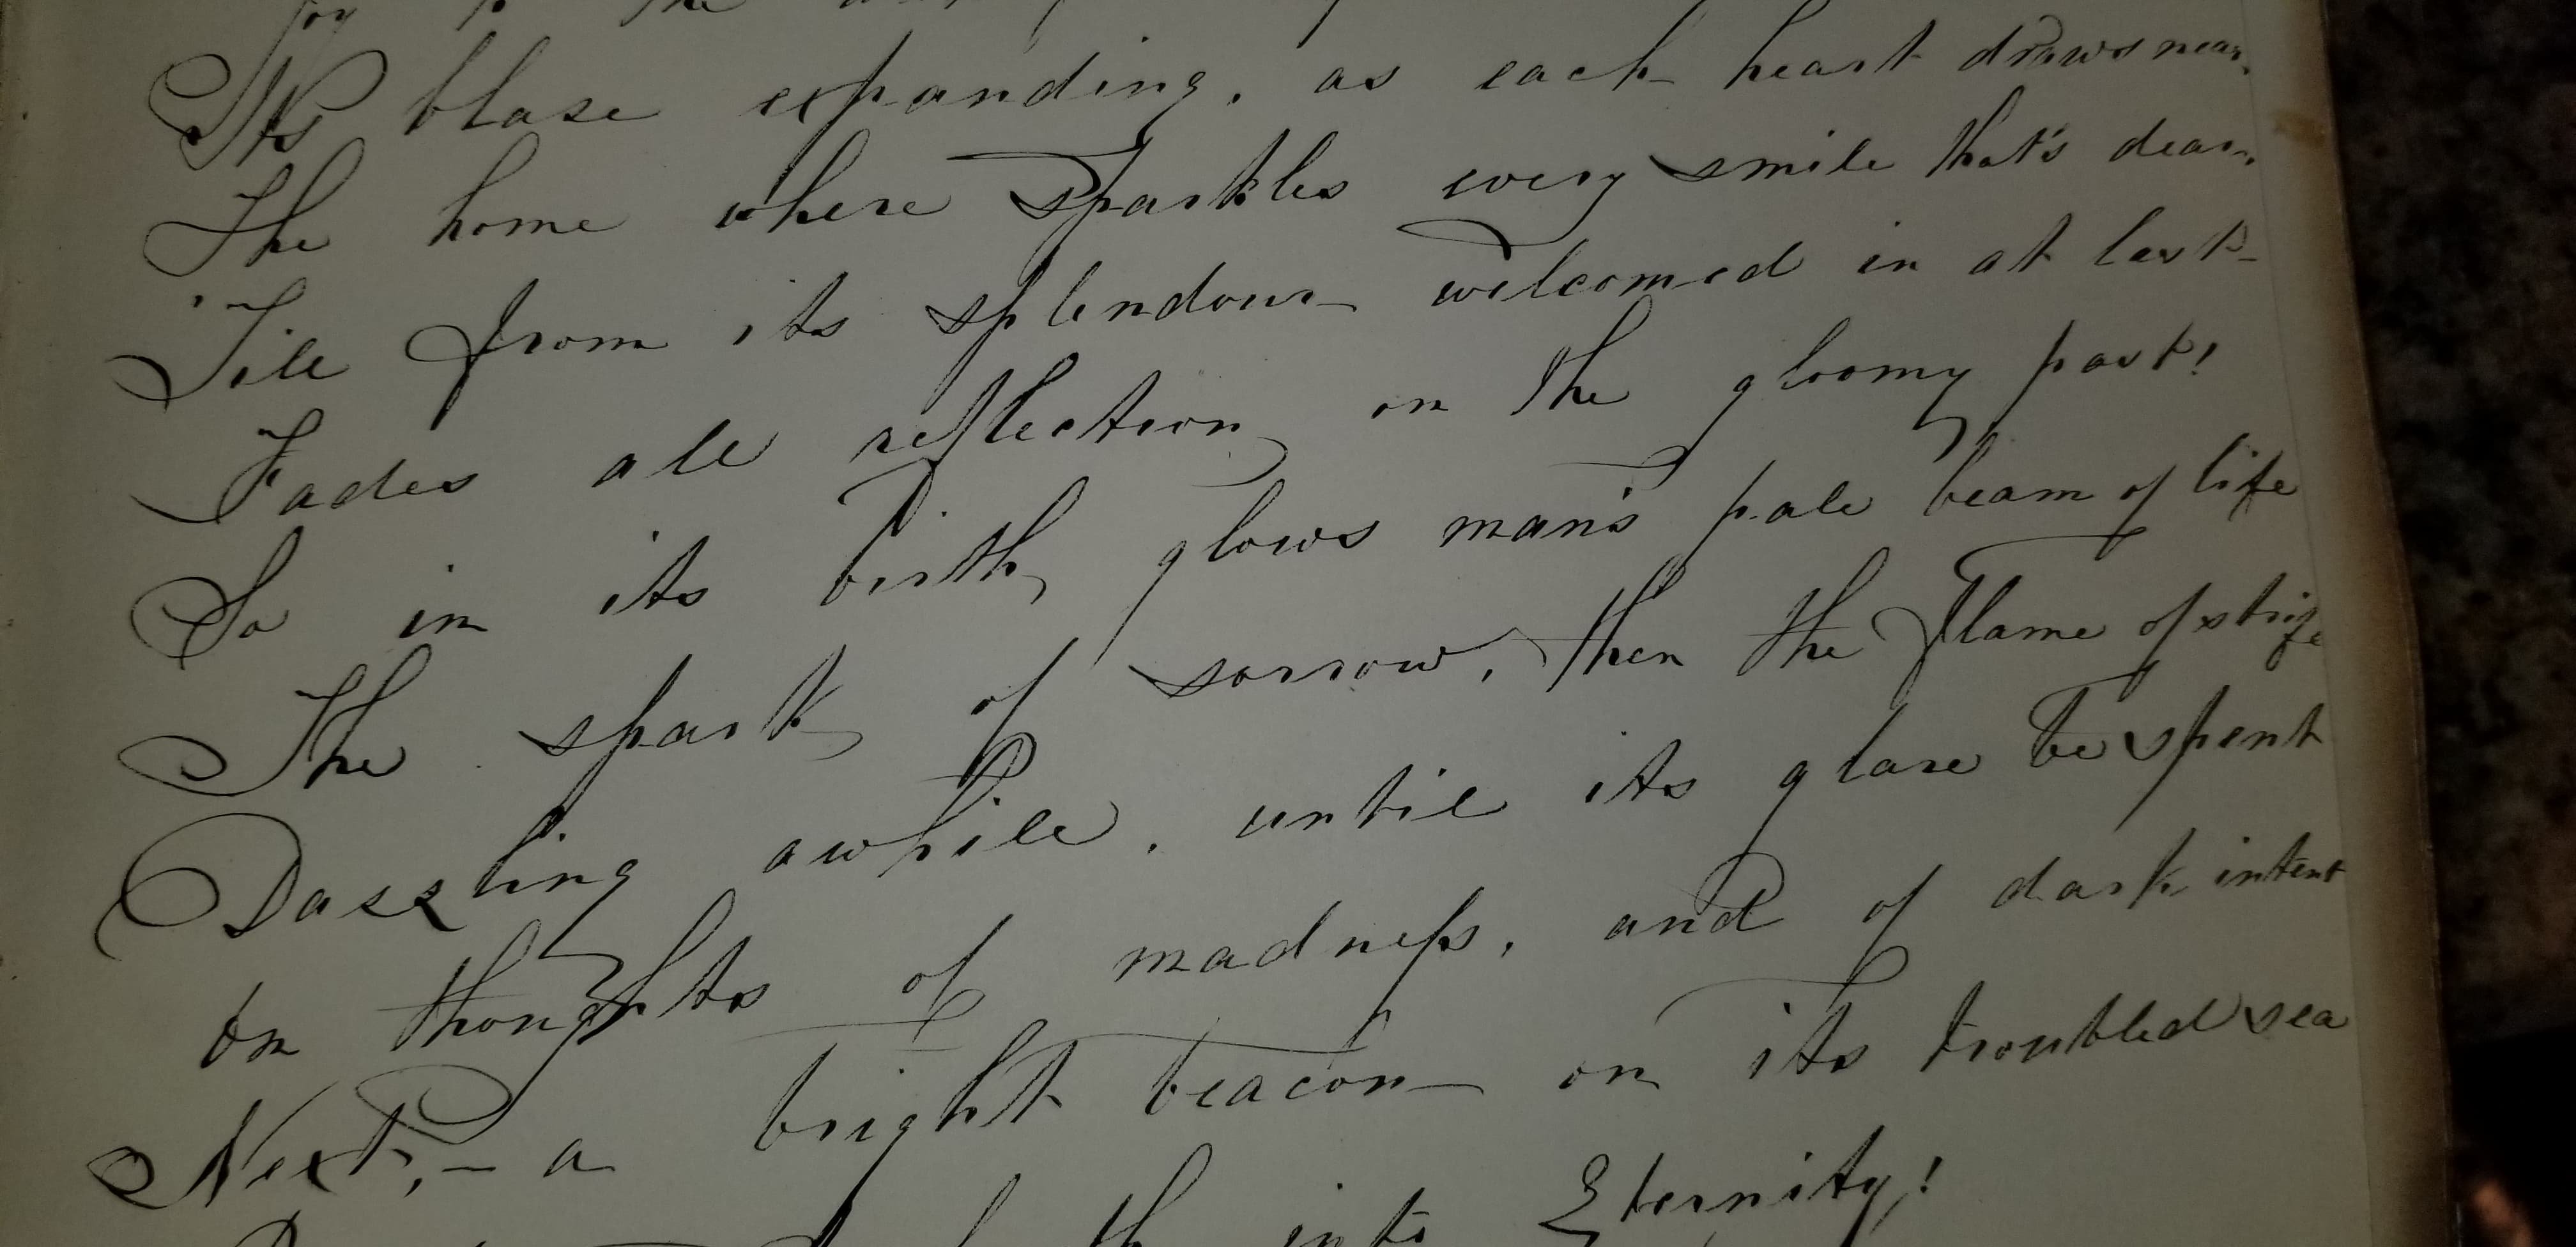 joy to the
Its blaze expanding, as each heart draws near,
The home where sparkles every smile that's dear,
Till from its splendour welcomed in at last
Fades all reflection on the gloomy past!
So in its birth, glows man's pale beam of life
The spark of sorrow, then the flame of strife
Dazzling awhile, until its glare be spent
On thoughts of madness, and of dark intent
Next, – a bright beacon on its troubled sea
into Eternity!